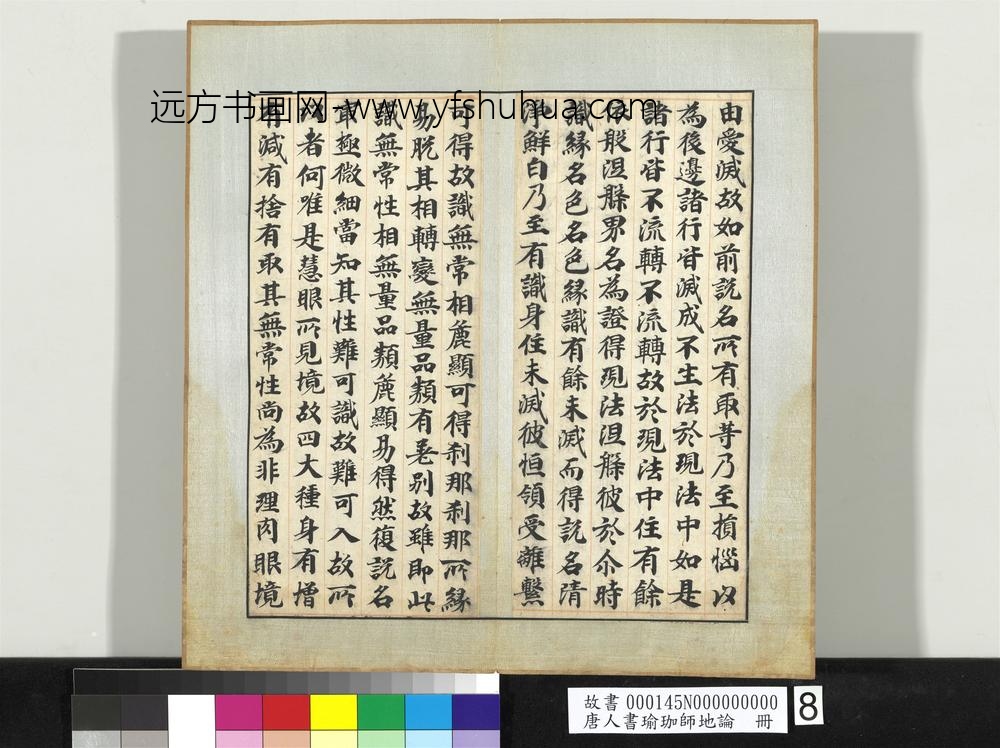 远方书画网-www.yfshuhua.com
由愛滅故如前說名所有取等乃至損惱以
為後邊諸行皆滅成不生法於現法中如是
諸行皆不流轉不流轉故於現法中住有餘
般涅槃界名為證得現法涅槃彼於尒時
識緣名色名色緣識有餘未滅而得說名清
鮮白乃至有識身住未滅彼恒領受離繫
可得故識無常相麁顯可得剎那剎那所緣
易脫其相轉變無量品類有差別故雖即此
識無常性相無量品類麁顯易得然復說名
最極微細當知其性難可識故難可入故所
者何唯是慧眼所見境故四大種身有增
有減有捨有取其無常性尚為非理肉眼境
故書 000145N000000000
唐人書瑜珈師地論 冊
8